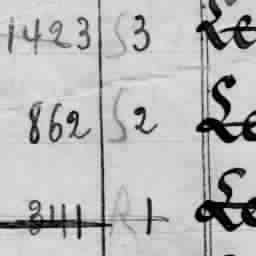 1423 S3 Le
862 S2 Le
3111 R1 Le